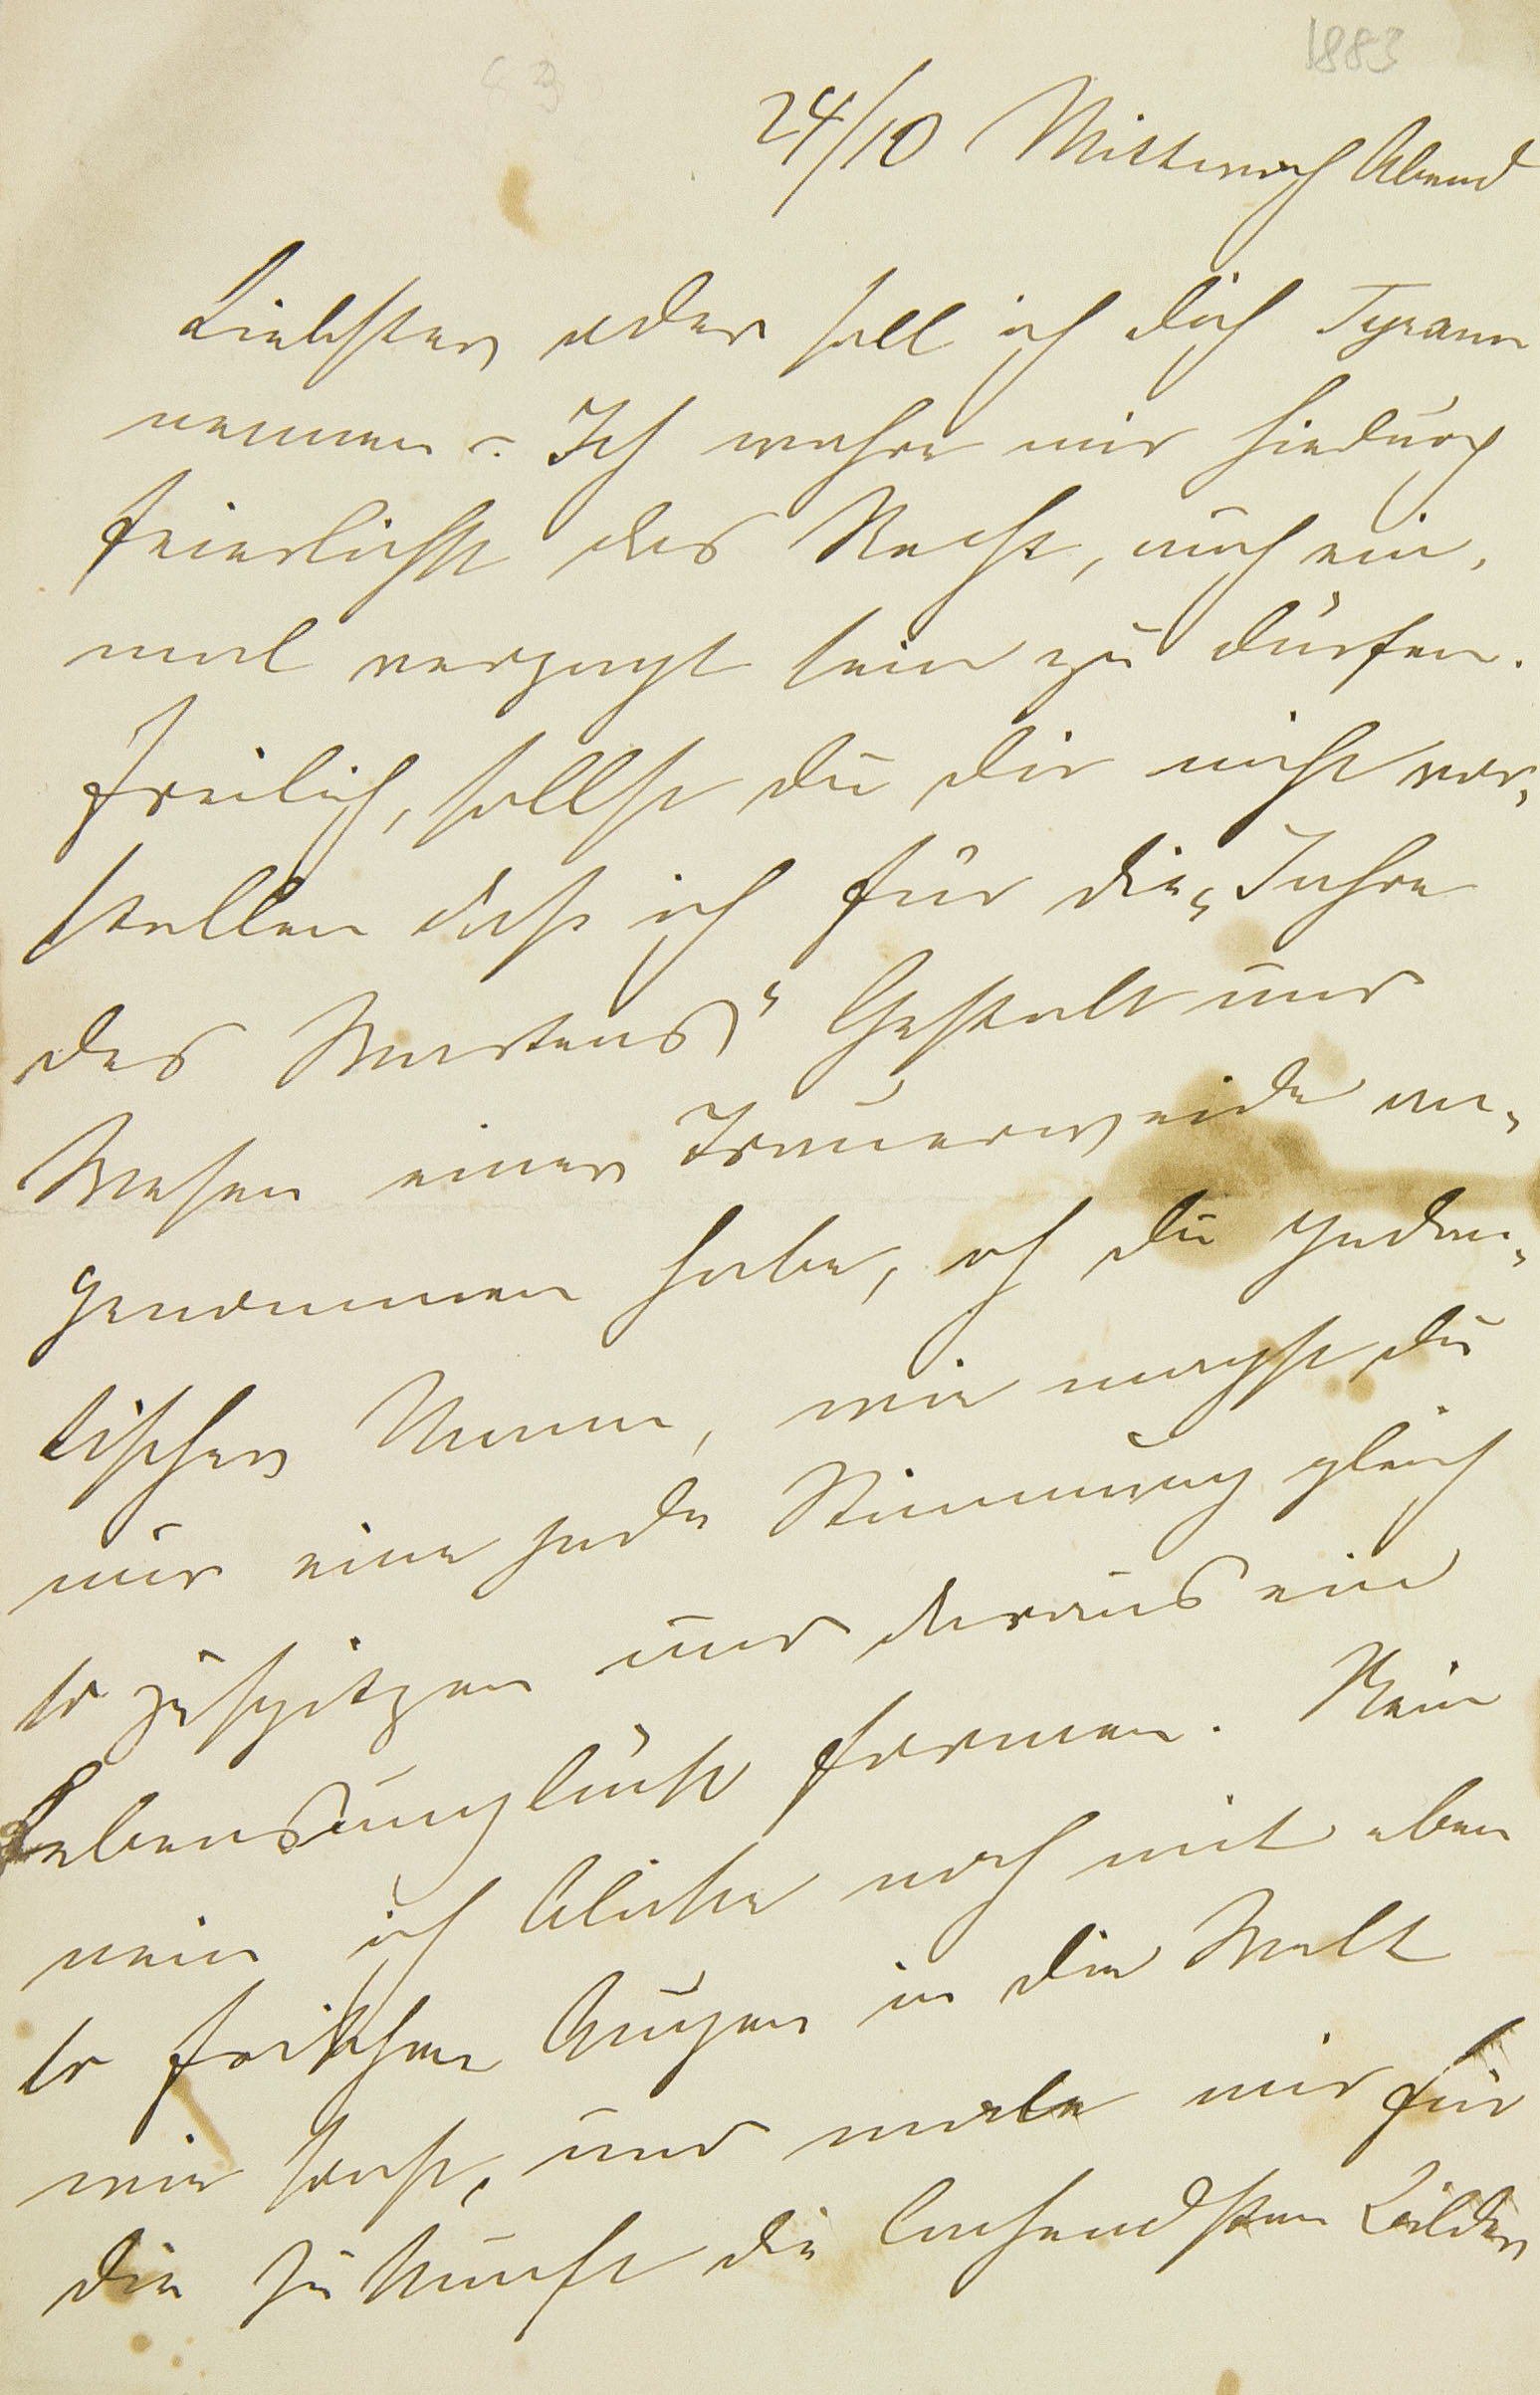 1883
83
24/10 Mittwoch Abend
Liebster oder soll ich dich Tyrann
nennen –. Ich wahre mir hiedurch
feierlichst das Recht, auch ein,
mal verzagt sein zu dürfen.
Freilich, sollst du dir nicht vor,
stellen daß ich für die „Jahre
des Wartens“ Gestalt und
Wesen einer Trauerweide an,
genommen habe, oh du pedan,
tischer Mann, wie magst du
nur eine jede Stimmung gleich
so zuspitzen und daraus ein
Lebensunglück formen. Nein
nein ich blicke noch mit eben
so frischen Augen in die Welt
wie sonst, und male mir für
die Zukunft die lachendsten Bilder